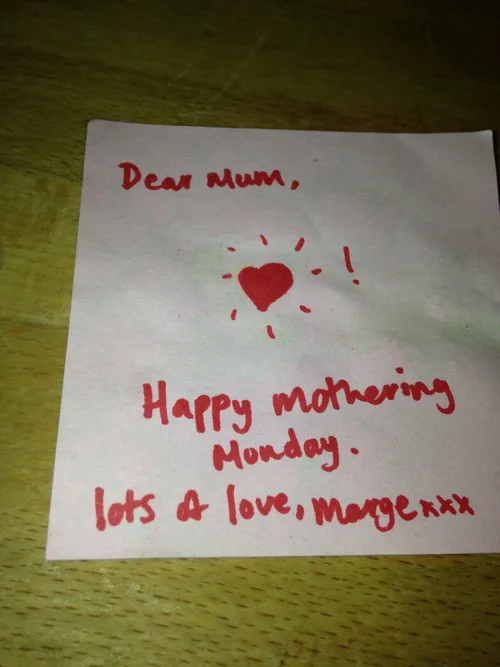 Dear Mum,
!
Happy Mothering
Monday.
lots A love, Marge xxx